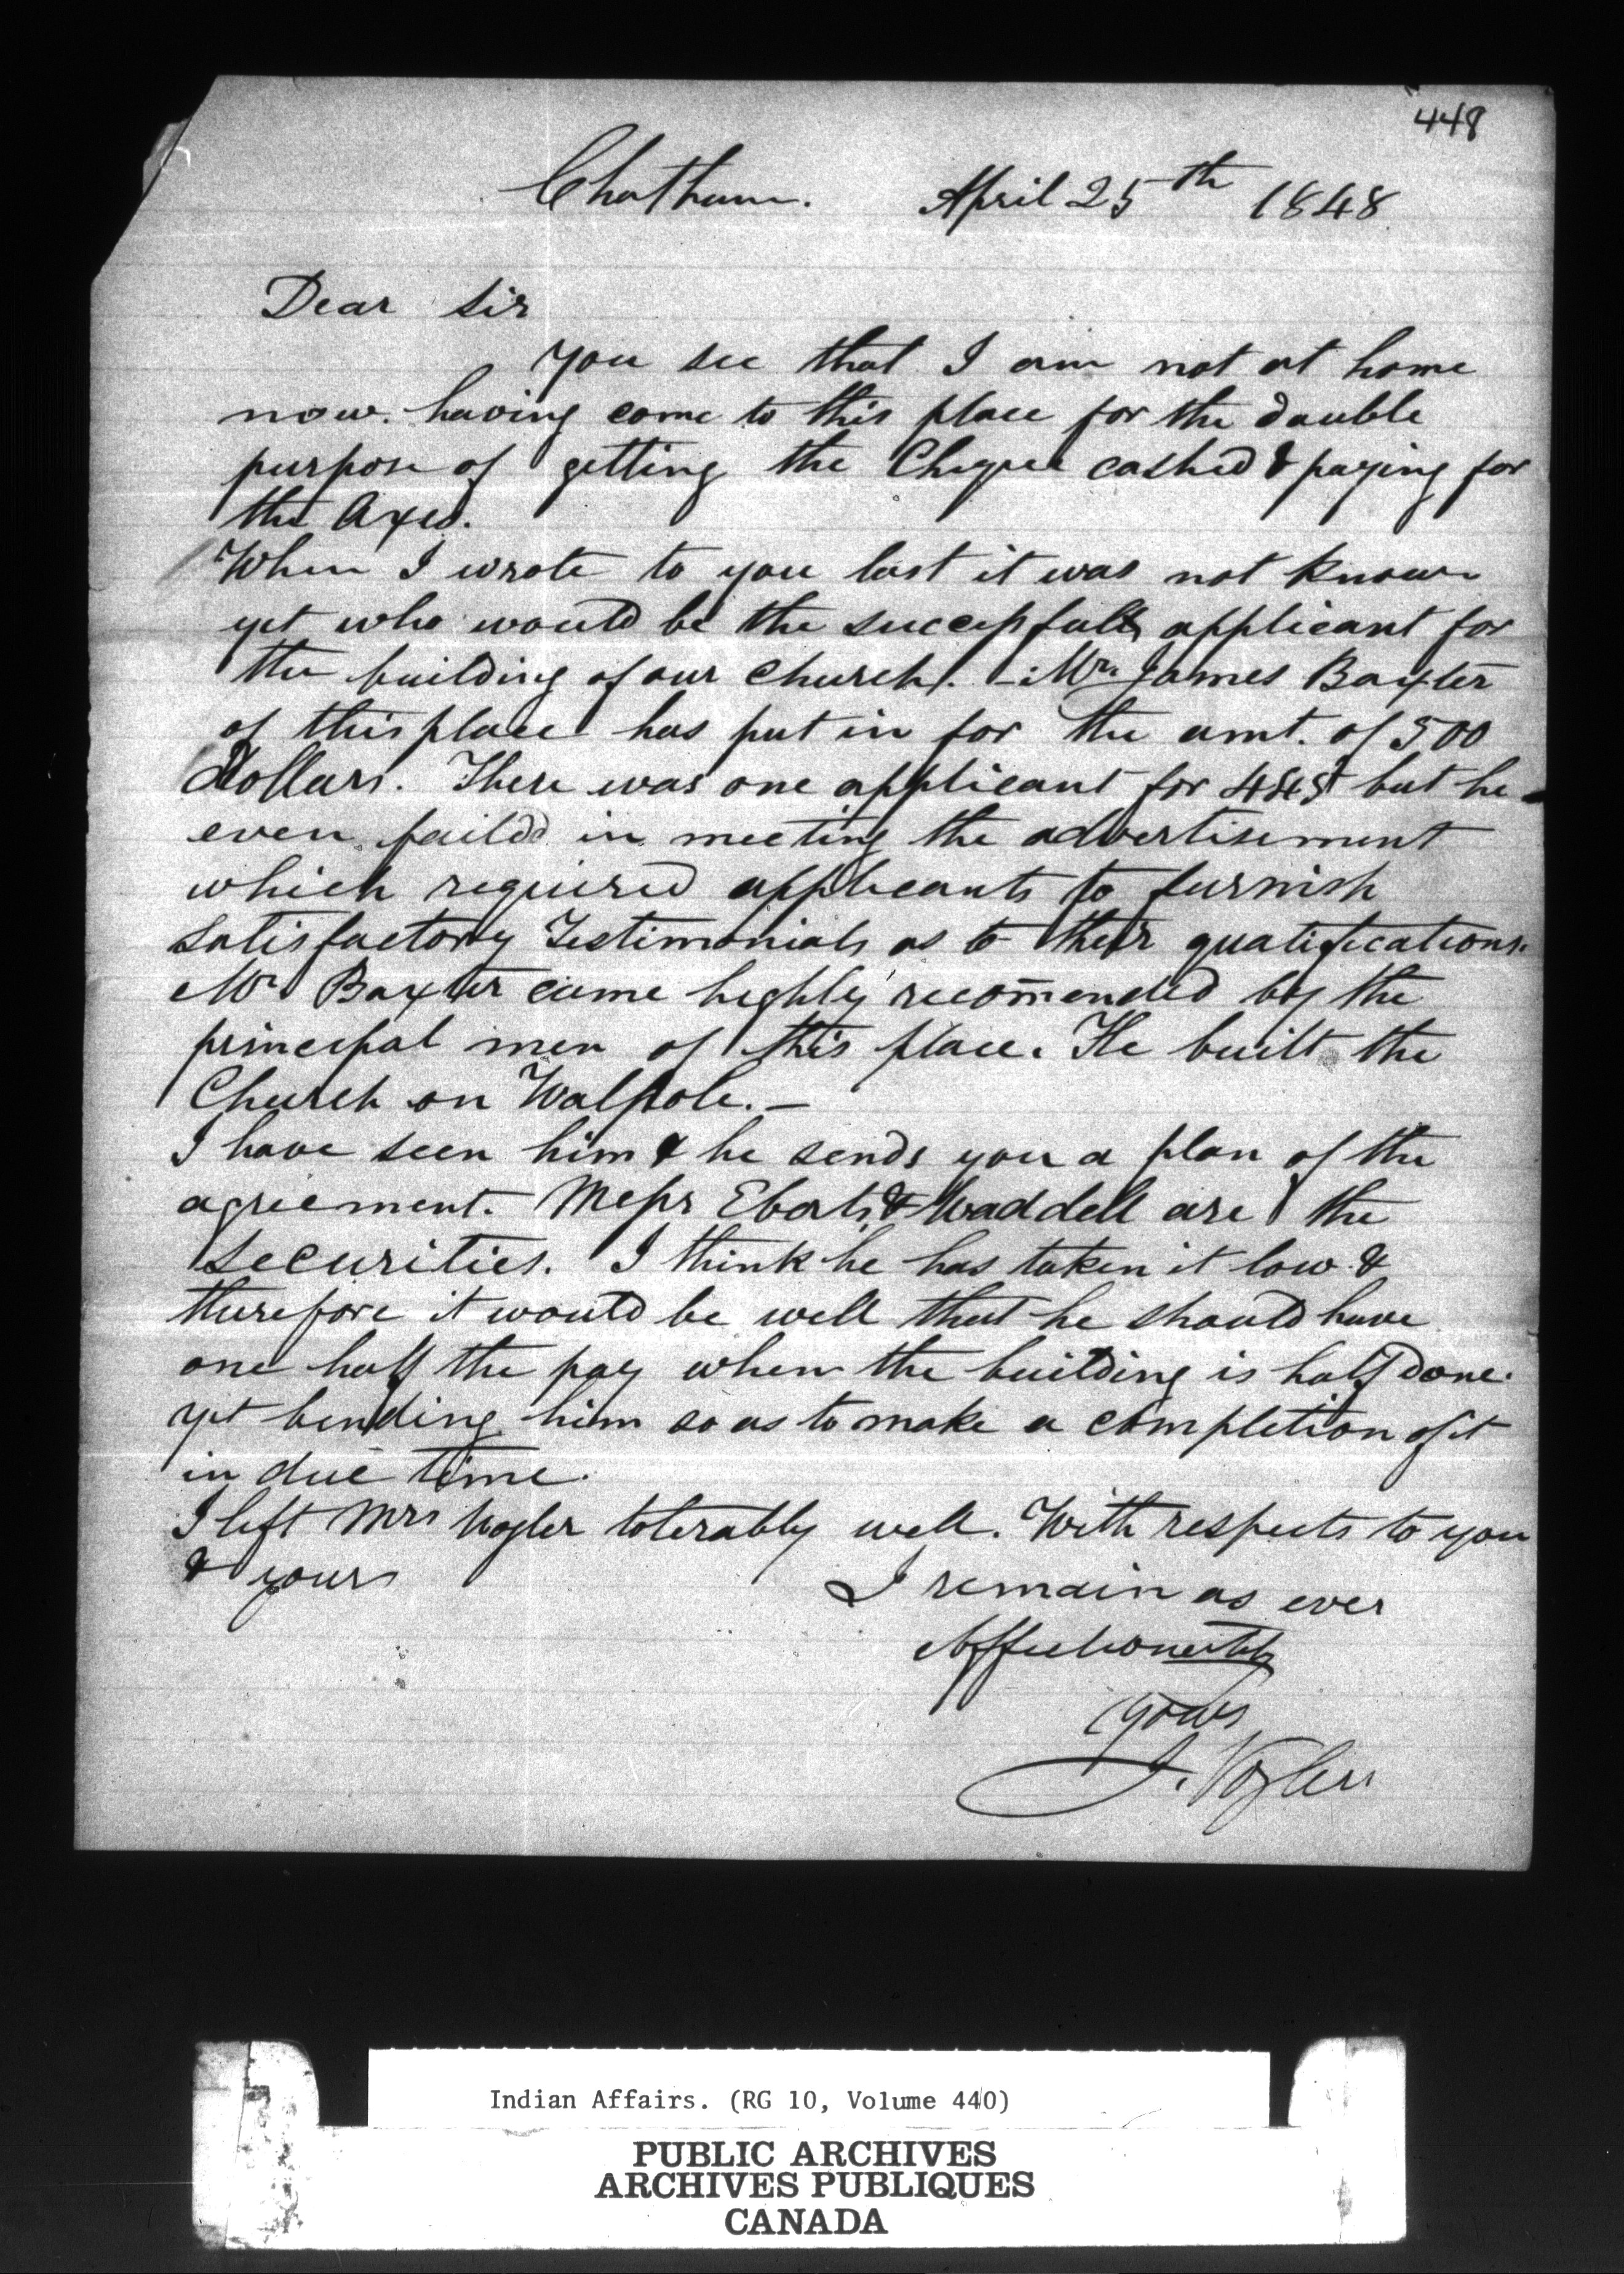 448
Chatham. April 25th 1848
Dear Sir
You see that I am not at home
now. having come to this place for the double
purpose of getting the Cheque cashed & paying for
the Axes.
When I wrote to you last it was not known
yet who would be the successfull applicant for
the building of our church. - Mr. James Baxter
of this place has put in for the amt. of 500
Dollars. There was one applicant for but he
even faild in meeting the advertisement
which required applicants to furnish
satisfactory Testimonials as to their qualifications.
Mr Baxter came highly recom̄ended by the
principal men of this place. He built the
Church on Walpole. -
I have seen him & he sends you a plan of the
agreement. Messrs Eberts & Waddell are the
securities. I think he has taken it low &
therefore it would be well that he should have
one half the pay when the building is half done.
yet binding him so as to make a completion of it
in due time.
I left Mrs Vogler tolerably well. With respects to you
& yours
I remain as ever
Affectionately
yours
J. Vogler
Indian Affairs. (RG 10, Volume 440)
PUBLIC ARCHIVES
ARCHIVES PUBLIQUES
CANADA